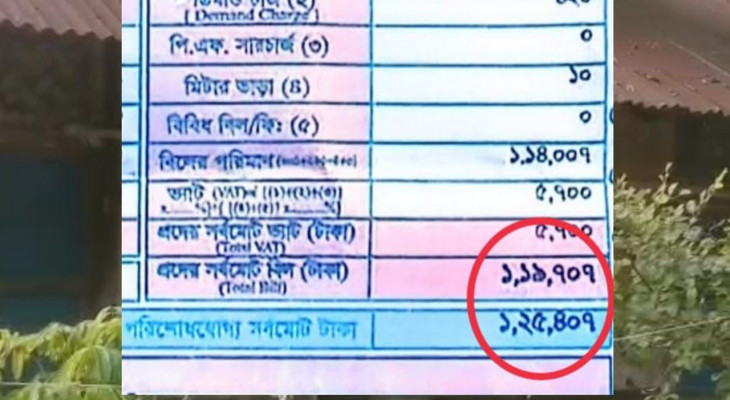 ডিমান্ড চার্জ (২)
[ Demand Charge ]
পি.এফ. সারচার্জ (৩) ০
মিটার ভাড়া (৪) ১০
বিবিধ বিল/ফিঃ (৫) ০
বিলের পরিমান ১,১৪,০০৭
ভ্যাট (VAT) ৫,৭০০
প্রদেয় সর্বমোট ভ্যাট (টাকা) ৫,৭০০
(Total VAT)
প্রদেয় সর্বমোট বিল (টাকা) ১,১৯,৭০৭
(Total Bill)
পরিশোধযোগ্য সর্বমোট টাকা ১,২৫,৪০৭